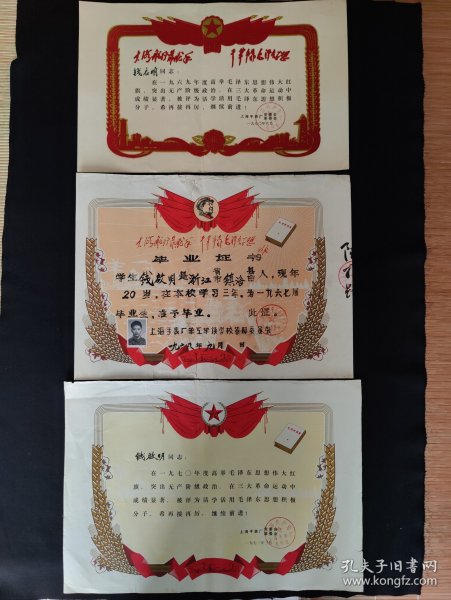 大海航行靠舵手 干革命靠毛泽东思想
钱启明同志：
在一九六九年度高举毛泽东思想伟大红
旗，突出无产阶级政治，在三大革命运动中
成绩显著，被评为活学活用毛泽东思想积极
分子，希再接再厉，继续前进！
上海手表厂
一九七〇年
大海航行靠舵手 干革命靠毛泽东思想
毕业证书
学生钱啟明是浙江省市镇海县市人，现年
20岁，在本校学习三年，为一九六七届
毕业生，准予毕业。此证。
一九六八年九月 日
钱啟明同志：
在一九七〇年度高举毛泽东思想伟大红
旗，突出无产阶级政治，在三大革命运动中
成绩显著，被评为活学活用毛泽东思想积极
分子，希再接再厉，继续前进！
上海手表厂
一九七一年
孔夫子旧书网
BOOK.KONGFZ.COM